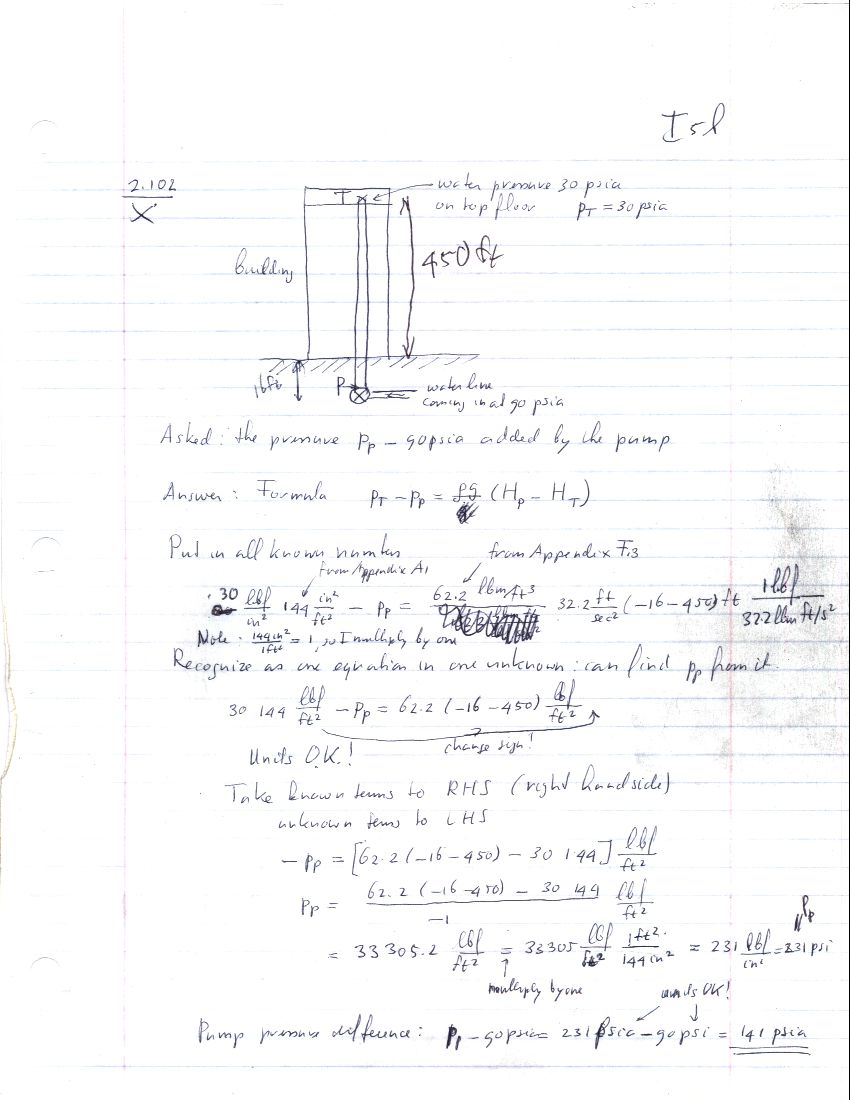 I 5 l
2.102
X
T
water pressure 30 psia
on top floor pT = 30 psia
building
450 ft
16 ft
P
water line
coming in at 90 psia
Asked: the pressure Pp - 90psia added by the pump
Answer: Formula PT - Pp = ρg (Hp - HT)
Put in all known numbers
from Appendix A1
from Appendix F.3
30 lbf/in² 144 in²/ft² - Pp = 62.2 lbm/ft³ 32.2 ft/sec² (-16 - 450) ft 1 lbf/32.2 lbm ft/s²
Note: 144 in²/1ft² = 1, so I multiply by one
Recognize as one equation in one unknown: can find Pp from it.
30 144 lbf/ft² - Pp = 62.2 (-16 - 450) lbf/ft²
change sign!
Units O.K.!
Take known terms to RHS (right hand side)
unknown terms to LHS
- Pp = [62.2 (-16 - 450) - 30 144] lbf/ft²
Pp = 62.2 (-16 - 450) - 30 144/-1 lbf/ft²
= 33 305.2 lbf/ft² = 33305 lbf/ft² 1ft²/144 in² = 231 lbf/in² = 231 psi
Pp
multiply by one
units OK!
Pump pressure difference: Pp - 90psia = 231 psia - 90 psi = 141 psia